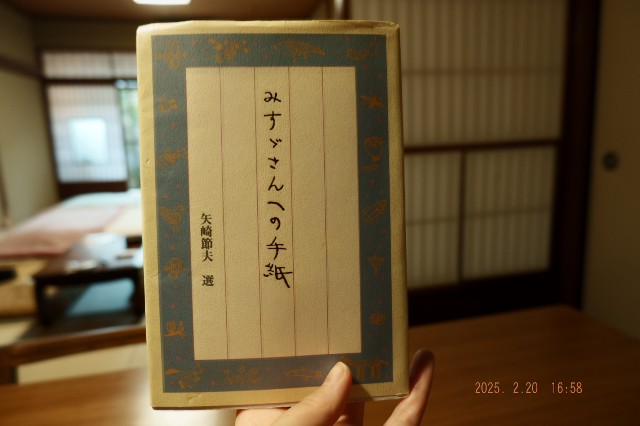 みすゞさんへの手紙
矢崎節夫 選
2025. 2.20 16:58